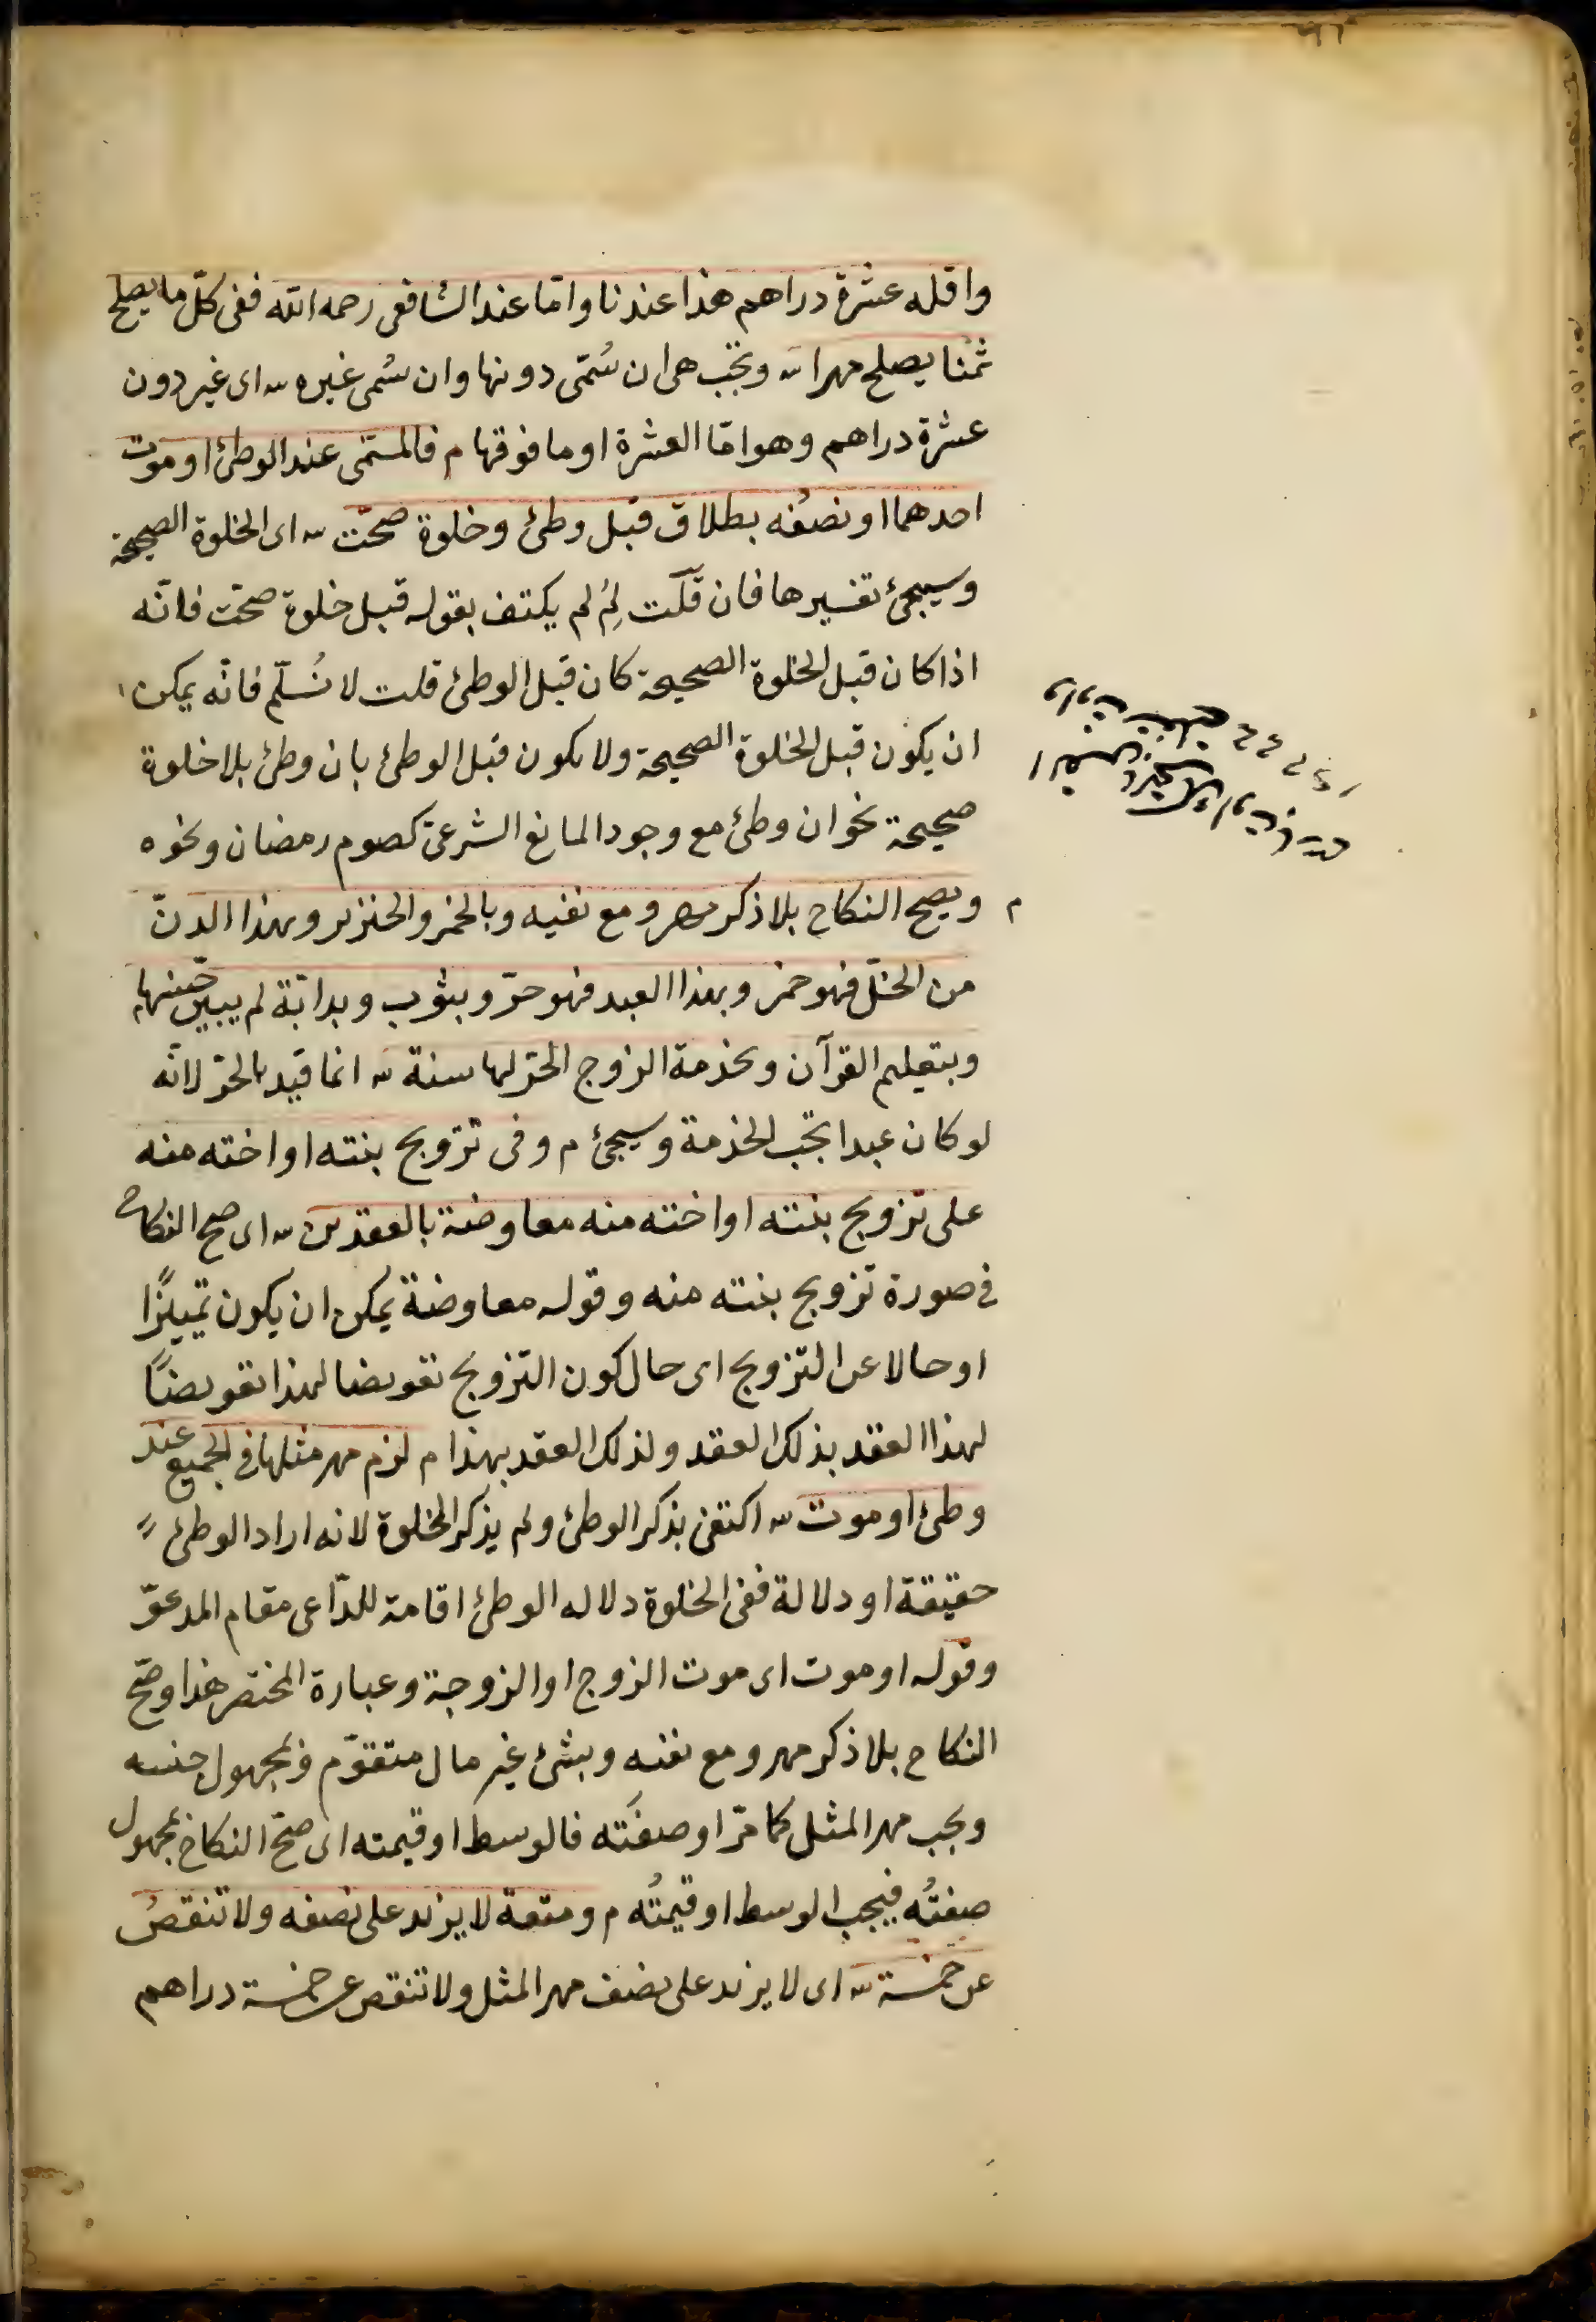 واقله عشرة دراهم هذا عندنا وامّا عند الشافعى رحمه الله ففى كلّ ما يصلح
ثمنا يصلح مهرا ش وتجب هى ان سُمّى دونها وان سُمى غيره ش اى غير دون
عشرة دراهم وهو امّا العشرة او ما فوقها م فالمسمّى عند الوطئ او موت
احدهما او نصفه بطلاق قبل وطئ وخلوة صحّت ش اى الخلوة الصحيحة
وسيجئ تفسيرها فان قلت لِمَ لم يكتف بقوله قبل خلوة صحّت فانّه
اذا كان قبل الخلوة الصحيحة كان قبل الوطئ قلت لا نُسلّم فانّه يمكن
ان يكون قبل الخلوة الصحيحة ولا يكون قبل الوطئ بان وطئ بلا خلوة
صحيحة نحو ان وطئ مع وجود المانع الشرعىّ كصوم رمضان ونحوه
م ويصح النكاح بلا ذكر مهر ومع نفيه وبالخمر والخنزير وبهذا الدنّ
من الخلّ فهو خمر وبهذا العبد فهو حرّ وبثوب وبدابّة لم يبين جنسهما
وبتعليم القرآن وبخدمة الزوج الحرّ لها سنة ش انما قيد بالحرّ لانّه
لو كان عبدا تجب الخدمة وسيجئ م وفى تزويج بنته او اخته منه
على تزويج بنته او اخته منه معاوضة بالعقدين ش اى صح النكاح
فى صورة تزويج بنته منه وقوله معاوضة يمكن ان يكون تمييزًا
او حالا عن التزويج اى حال كون التزويج تعويضا لهذا تعويضًا
لهذا العقد بذلك العقد ولذلك العقد بهذا م لزم مهر مثلها فى الجميع عند
وطئ او موت ش اكتفى بذكر الوطئ ولم يذكر الخلوة لانه اراد الوطئ
حقيقة او دلالة ففى الخلوة دلاله الوطئ اقامة للدّاعى مقام المدعوّ
وقوله او موت اى موت الزوج او الزوجة وعبارة المختصر هذا وصحّ
النكاح بلا ذكر مهر ومع نفيه وبشئ غير مال متقوّم وبمجهول جنسه
ويجب مهر المثل كما مرّ او صفته فالوسط او قيمته اى صحّ النكاح بمجهول
صفتُه فيجب الوسط او قيمتُه م ومتعة لا يزيد على نصفه ولا تنقصُ
عن خمسة ش اى لا يزيد على نصف مهر المثل ولا تنقص عن خمسة دراهم